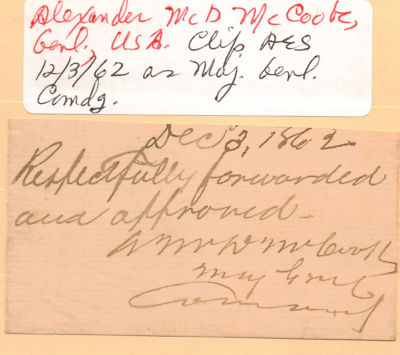 Alexander McD McCook,
Genl., USA. Clip AES
12/3/62 as Maj. Genl.
Comdg.
Dec 3, 1862
Respectfully forwarded
and approved—
A McD McCook
Maj Genl